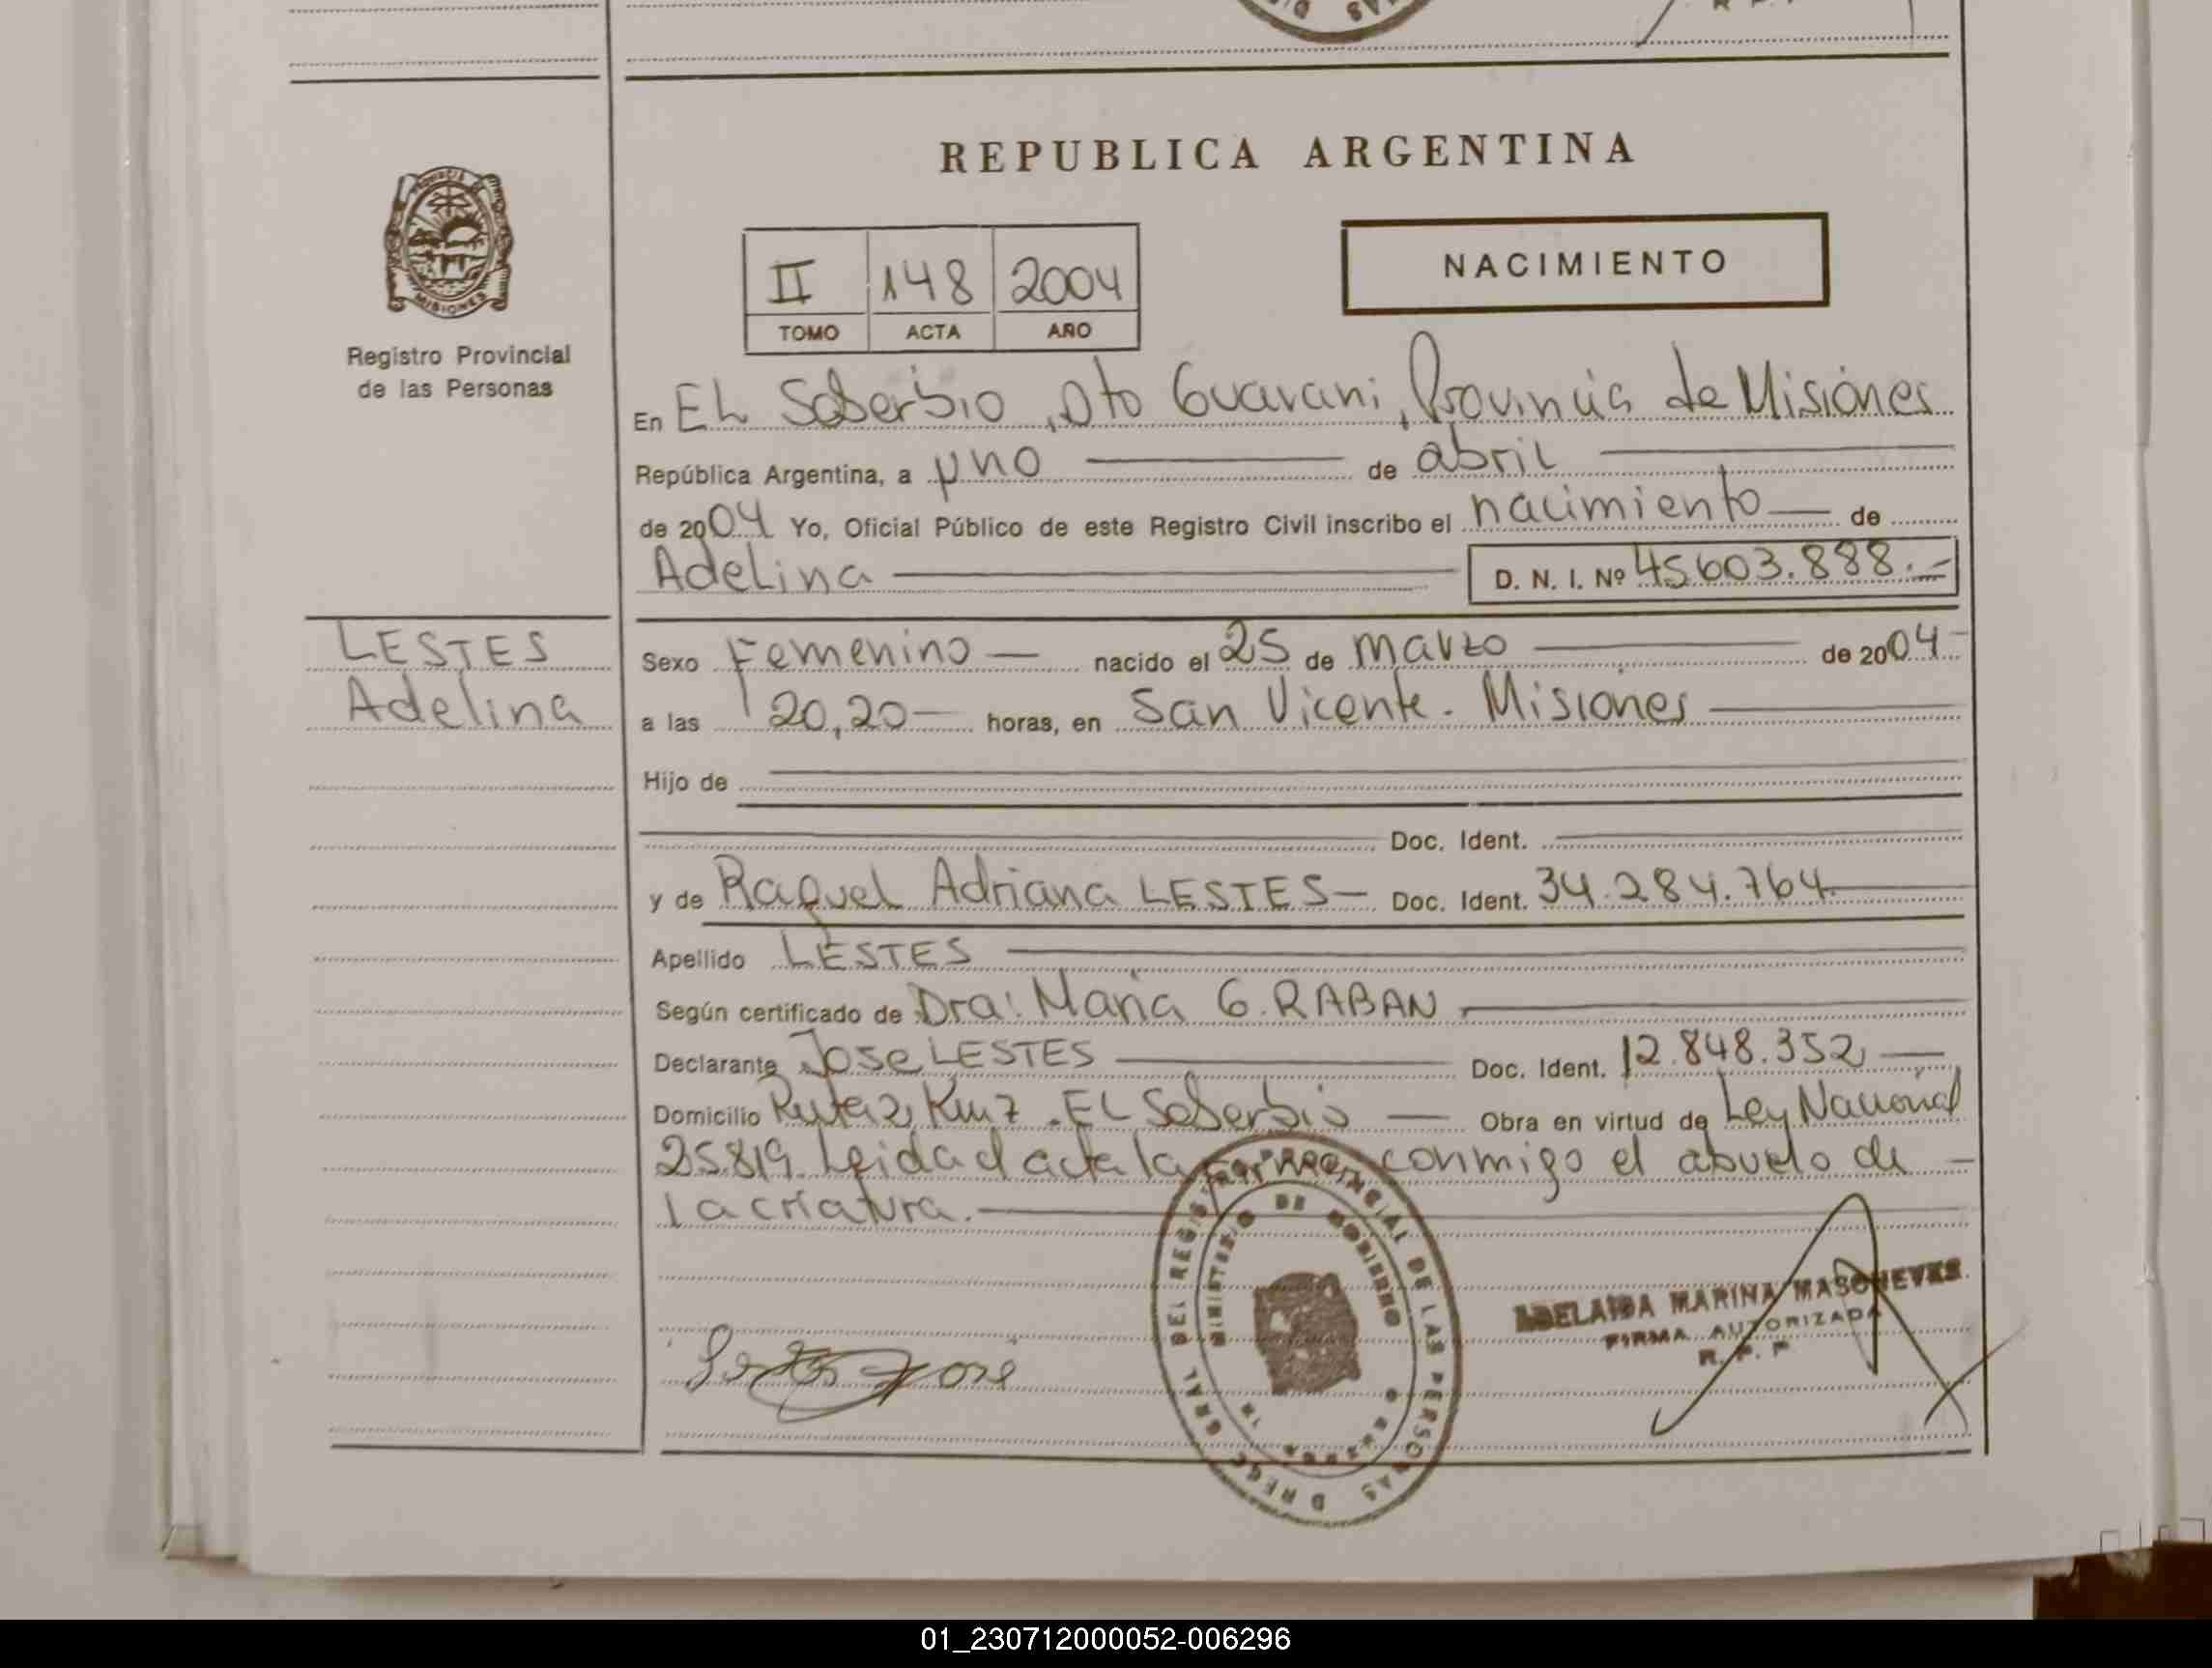 REPUBLICA ARGENTINA
II 148 2004
TOMO ACTA AÑO
NACIMIENTO
MISIONES
Registro Provincial
de las Personas
En EL Soberbio, Dto Guarani, Provincia de Misiones
República Argentina, a uno de abril
de 2004 Yo, Oficial Público de este Registro Civil inscribo el nacimiento de
Adelina D. N. I. Nº 45.603.888.-
LESTES
Adelina
Sexo Femenino nacido el 25 de marzo de 2004
a las 20,20 horas, en San Vicente. Misiones
Hijo de
Doc. Ident.
y de Raquel Adriana LESTES Doc. Ident. 34.284.764
Apellido LESTES
Según certificado de Dra: Maria G. RABAN
Declarante Jose LESTES Doc. Ident. 12.848.352
Domicilio Ruta 2, Km 7. EL Soberbio Obra en virtud de Ley Nacional
25.819. Leida el acta la conmigo el abuelo de
la criatura.
DE LAS PERSONAS
MINISTERIO DE GOBIERNO
ADELAIDA MARINA
FIRMA AUTORIZADA
R. P. P.
José
01_230712000052-006296